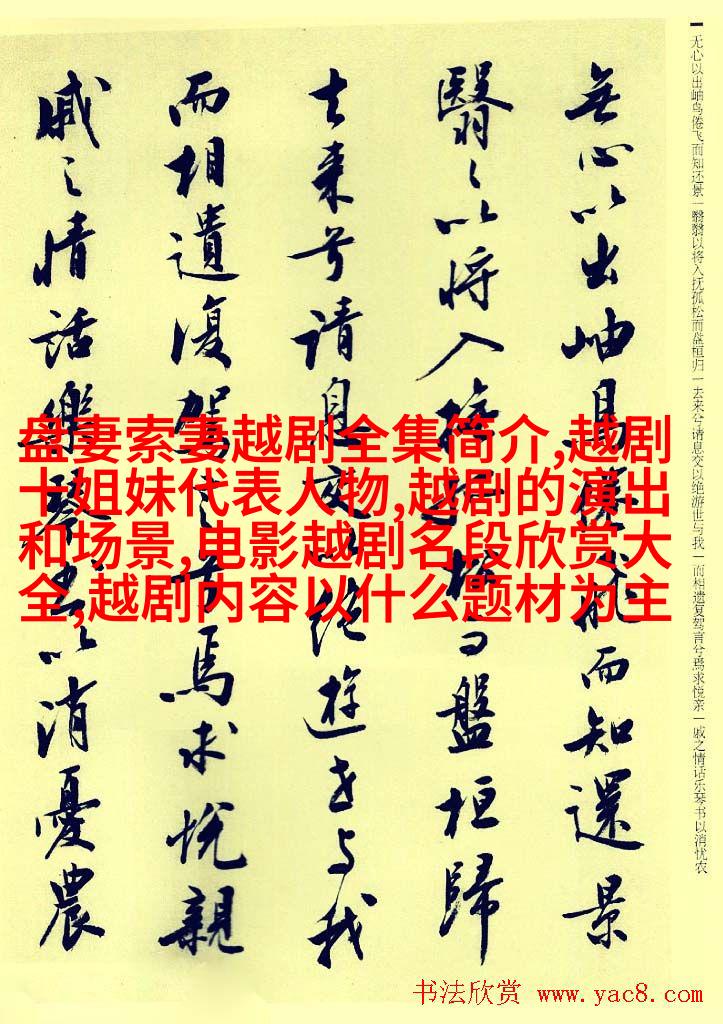 无心以出岫鸟倦飞而知还景一翳翳以将入抚孤松而盘桓归一去来兮请息交以绝游世与我一而相遗复驾言兮焉求悦亲一戚之情话乐琴书以消忧农
無心以出岫鳥倦飛而知還景
翳〻以將入撫孤松而盤桓歸
去来兮請息交以絕遊世与我
而相遺復駕言兮焉求悅親
戚之情話樂琴書以消憂農
盘妻索妻越剧全集简介,越剧
十姐妹代表人物,越剧的演出
和场景,电影越剧名段欣赏大
全,越剧内容以什么题材为主
书法欣赏 www.yac8.com